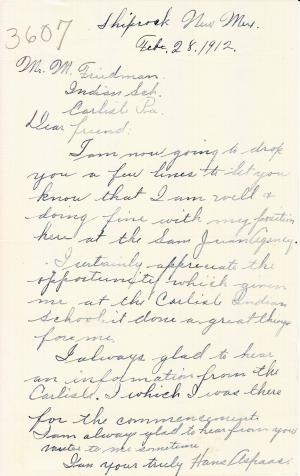 3607
Shiprock New Mex.
Febr. 28. 1912.
Mr. M. Friedman.
Indian Sch.
Carlisle Pa.
Dear friend:
I am now going to drop
you a few lines to let you
know that I am well &
doing fine with my position
here at the San Juan Agency.
I certainly appreciate the
opportunity which given
me at the Carlisle Indian
School. it done a great things
for me.
I always glad to hear
an information from the
Carlisle. I which I was there
for the commencement.
I am always glad to hear from you
write to me sometime
I am your truly Hans Aspaas.